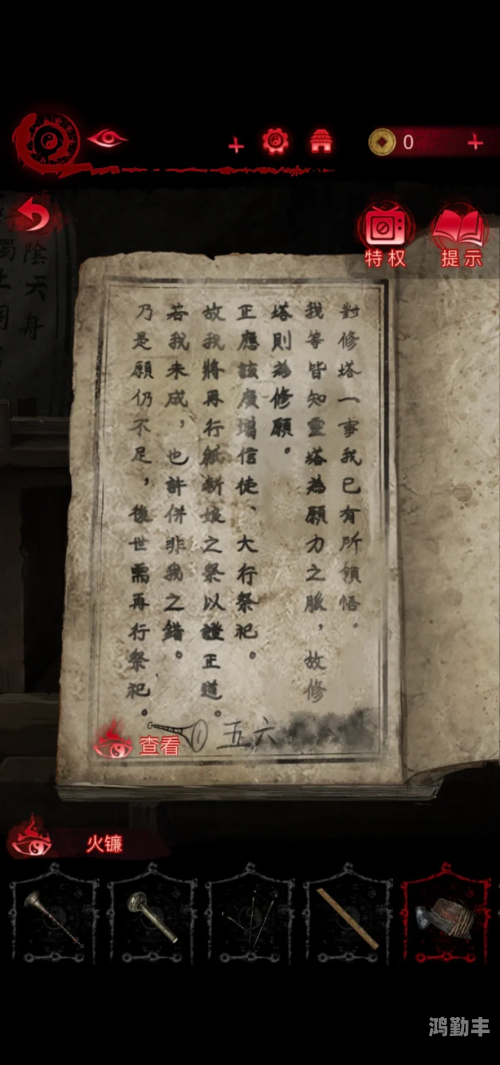 0
特权
提示
陰天舟
對修塔一事我已有所領悟。
我等皆知靈塔為願力之賬，故修
塔則為修願。
正應該廣增信徒、大行祭祀。
故我將再行紙新娘之祭以證正道。
若我未成，也許併非我之錯。
乃是願仍不足，後世需再行祭祀。
五六
查看
火镰
鸿勤丰